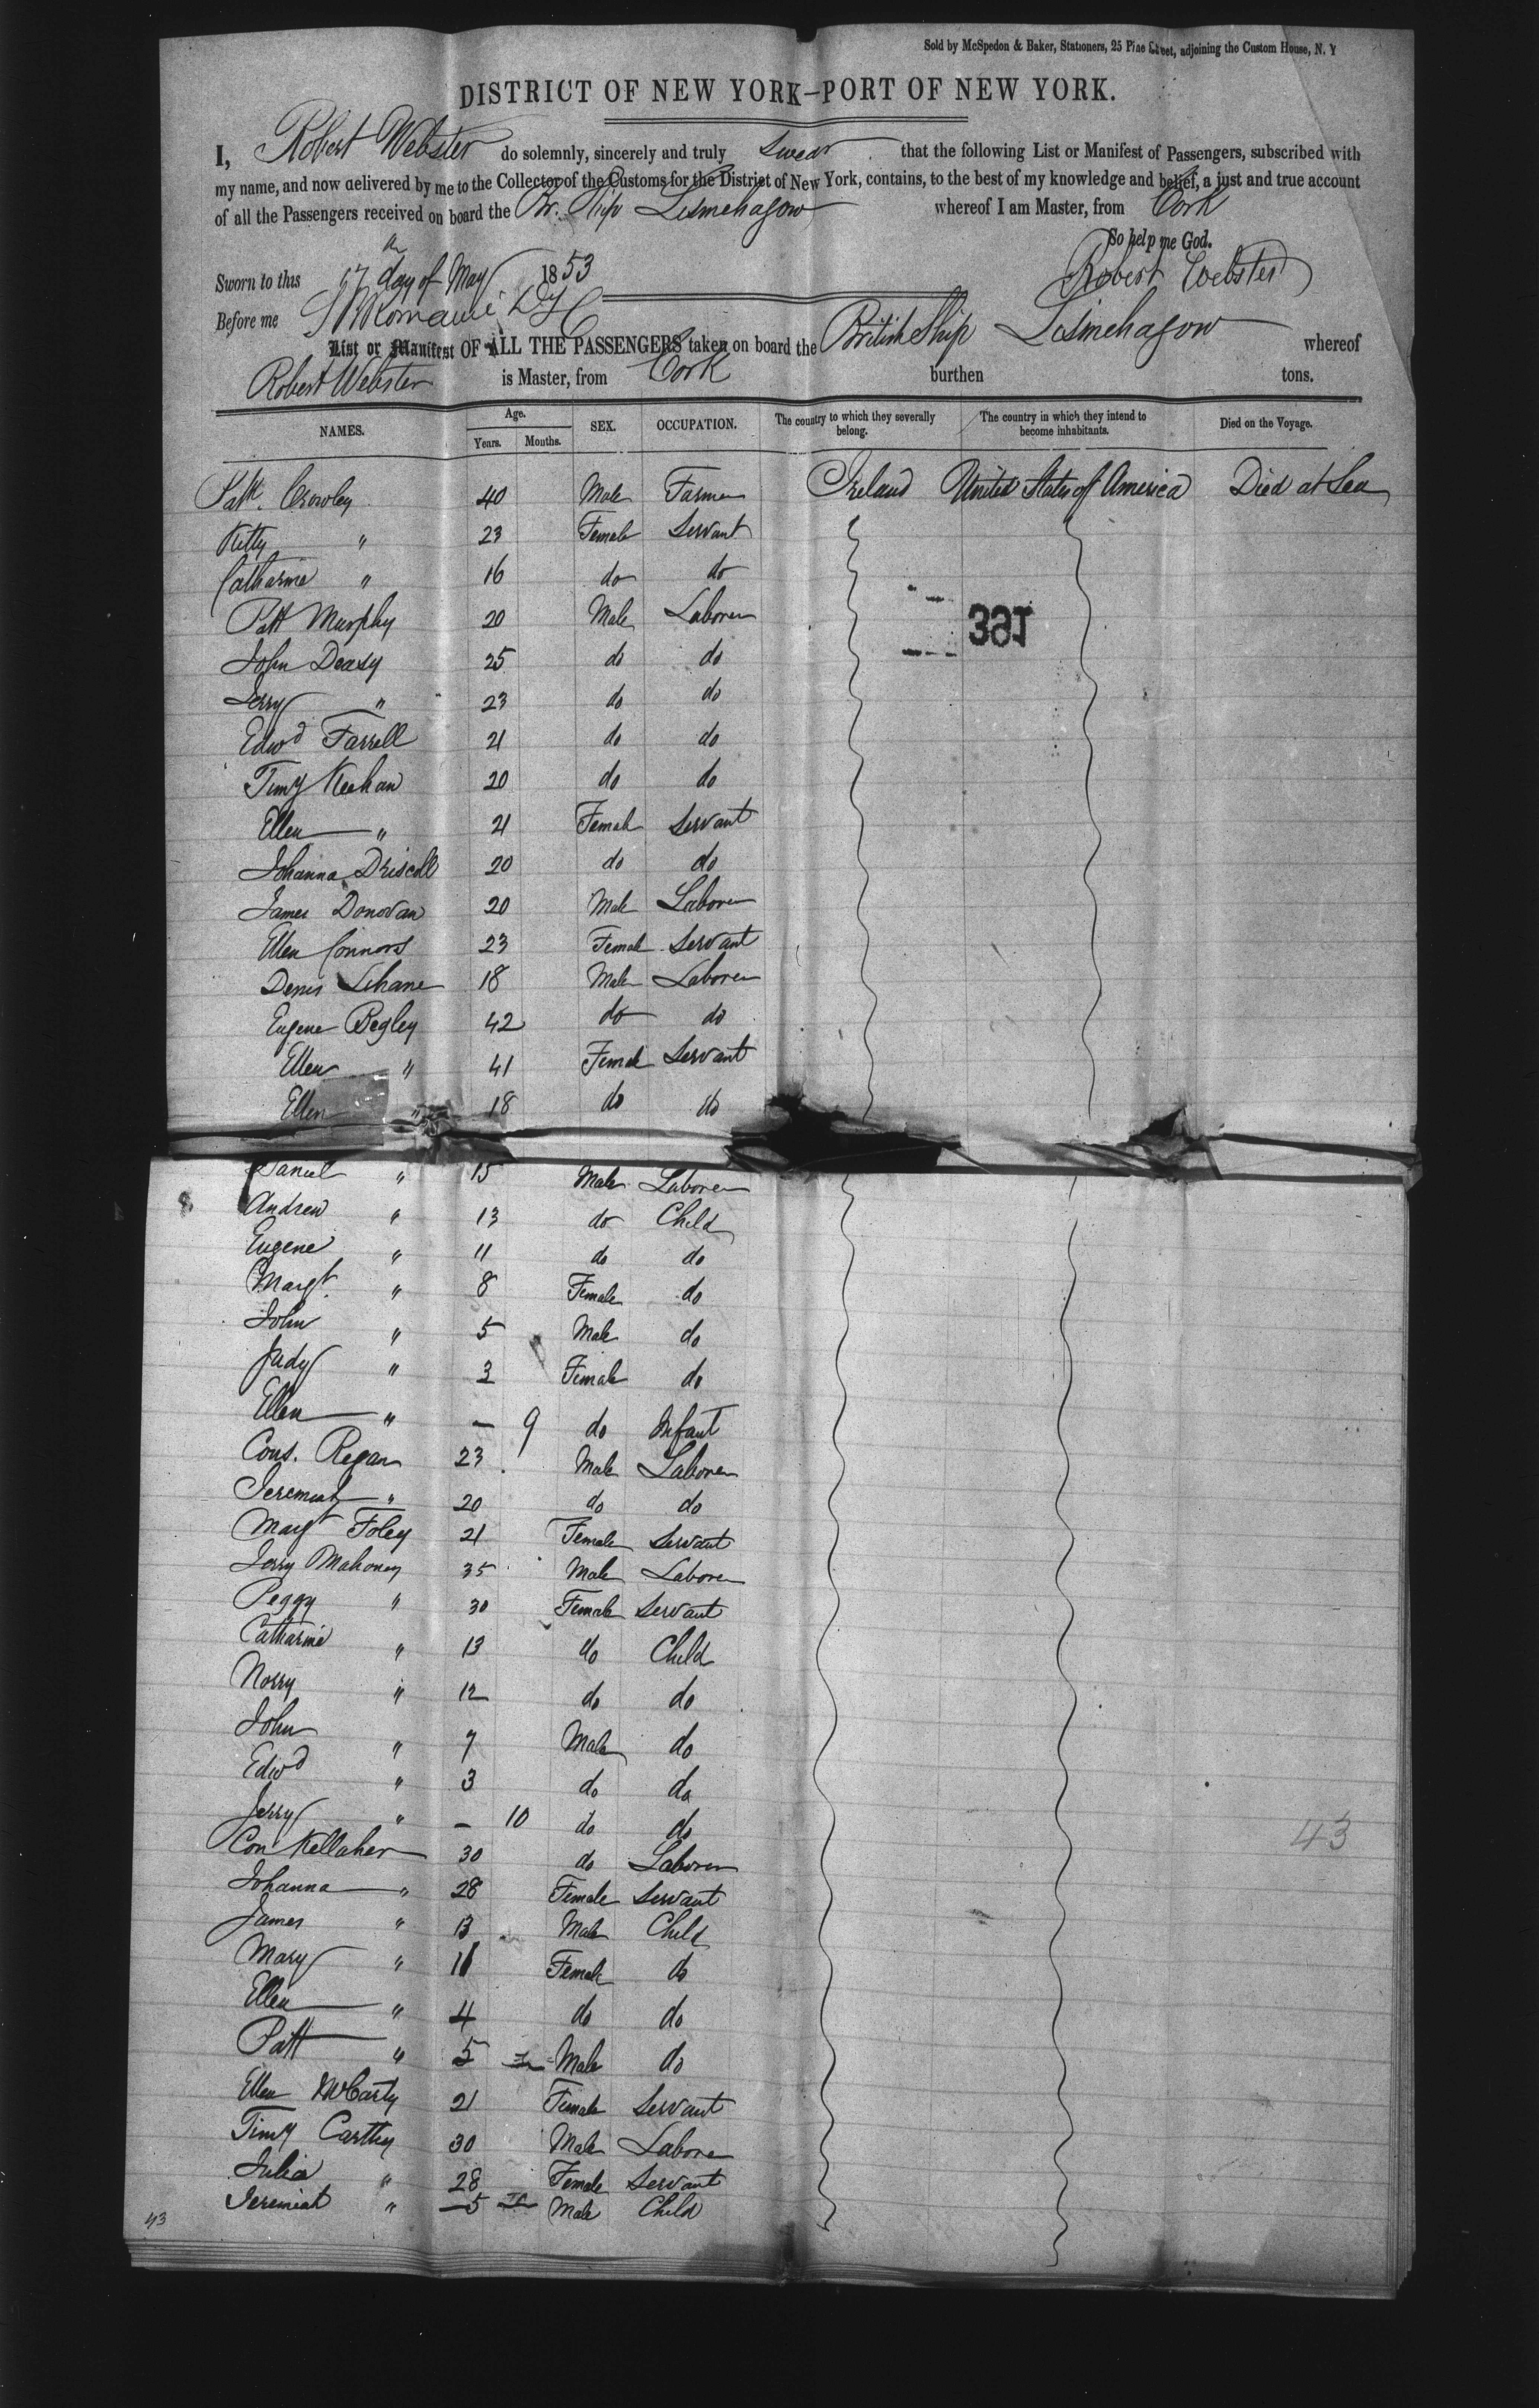 Sold by McSpedon & Baker, Stationers, 25 Pine Street, adjoining the Custom House, N. Y
DISTRICT OF NEW YORK—PORT OF NEW YORK.
I, Robert Webster do solemnly, sincerely and truly Swear that the following List or Manifest of Passengers, subscribed with
my name, and now delivered by me to the Collector of the Customs for the District of New York, contains, to the best of my knowledge and belief, a just and true account
of all the Passengers received on board the Br. Ship Lesmehagow whereof I am Master, from Cork
So help me God.
Sworn to this 17 day of May 1853 Robert Webster
Before me
List or Manifest OF ALL THE PASSENGERS taken on board the British Ship Lesmehagow whereof
Robert Webster is Master, from Cork burthen tons.
NAMES. Age. Years. Months. SEX. OCCUPATION. The country to which they severally belong. The country in which they intend to become inhabitants. Died on the Voyage.
Patk. Crowley 40 Male Farmer Ireland United States of America Died at Sea
Kitty " 23 Female Servant
Catharine " 16 do do
Patt Murphy 20 Male Laborer
361
John Deasy 25 do do
Jerry " 23 do do
Edwd Farrell 21 do do
Timy Keehan 20 do do
Ellen " 21 Female Servant
Johanna Driscoll 20 do do
James Donovan 20 Male Laborer
Ellen Connors 23 Female Servant
Denis Lehane 18 Male Laborer
Eugene Begley 42 do do
Ellen " 41 Female Servant
Ellen " 18 do do
Daniel " 15 Male Laborer
Andrew " 13 do Child
Eugene " 11 do do
Margt. " 8 Female do
John " 5 Male do
Judy " 3 Female do
Ellen " — 9 do Infant
Cons. Regan 23 Male Laborer
Jeremiah " 20 do do
Margt Foley 21 Female Servant
Jerry Mahoney 35 Male Laborer
Peggy " 30 Female Servant
Catharine " 13 do Child
Norry " 12 do do
John " 7 Male do
Edwd " 3 do do
Jerry " — 10 do do
43
Con Kellaher 30 do Laborer
Johanna " 28 Female Servant
James " 13 Male Child
Mary " 11 Female do
Ellen " 4 do do
Patt " 5 Male do
Ellen McCarty 21 Female Servant
Timy Carthy 30 Male Laborer
Julia " 28 Female Servant
Jeremiah " 5 Male Child
43